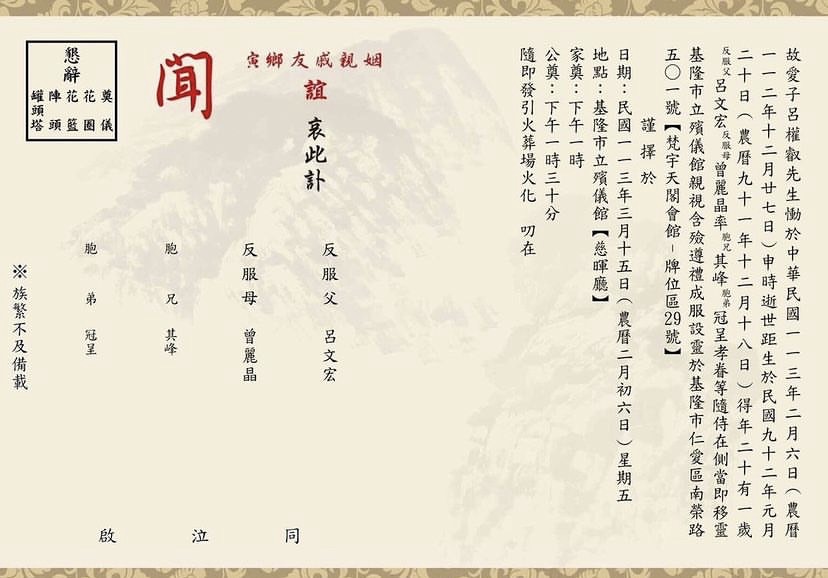 故愛子呂權叡先生慟於中華民國一一三年二月六日(農曆
一一二年十二月廿七日)申時逝世距生於民國九十二年元月
二十日(農曆九十一年十二月十八日)得年二十有一歲
反服父呂文宏反服母曾麗晶率胞兄其峰胞弟冠呈孝眷等隨侍在側當即移靈
基隆市立殯儀館親視含殮遵禮成服設靈於基隆市仁愛區南榮路
五〇一號【梵宇天閣會館-牌位區29號】
謹擇於
日期:民國一一三年三月十五日(農曆二月初六日)星期五
地點:基隆市立殯儀館【慈暉廳】
家奠:下午一時
公奠:下午一時三十分
隨即發引火葬場火化 叨在
姻親戚友鄉寅
誼
哀此訃
聞
懇辭
奠儀
花圈
花籃
陣頭
罐頭塔
反服父 呂文宏
反服母 曾麗晶
胞兄 其峰
胞弟 冠呈
同泣啟
※族繁不及備載